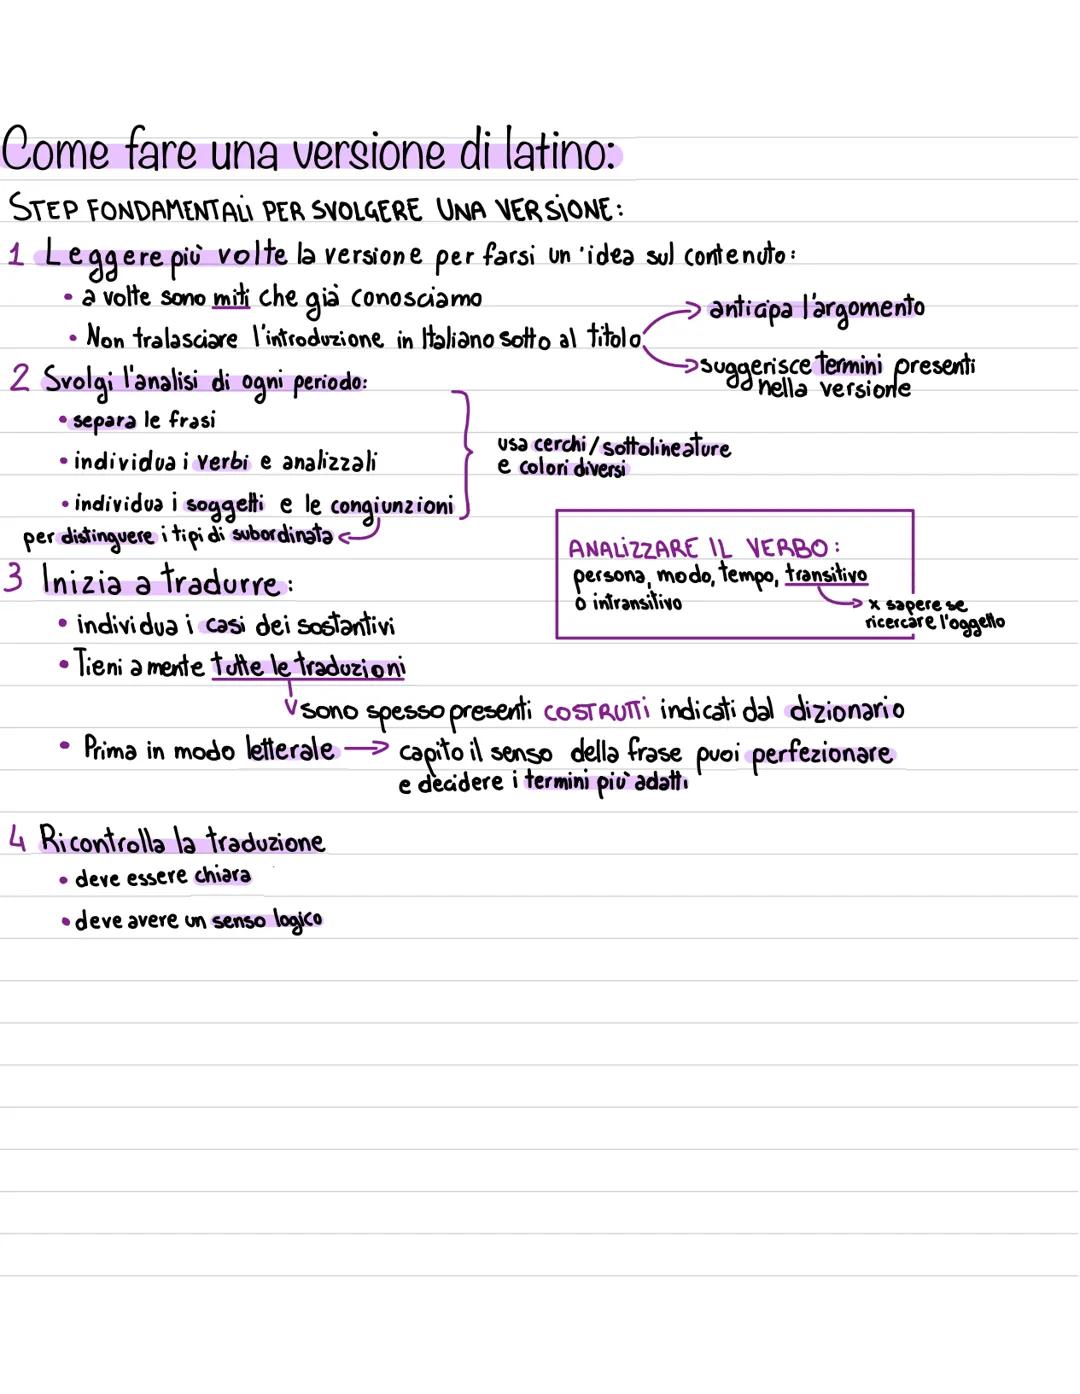 Come fare una versione di latino:
STEP FONDAMENTALI PER SVOLGERE UNA VERSIONE:
1 Leggere più volte la versione per farsi un'idea sul contenuto:
• a volte sono miti che già conosciamo
• Non tralasciare l'introduzione in Italiano sotto al titolo
→ anticipa l'argomento
→ suggerisce termini presenti
nella versione
2 Svolgi l'analisi di ogni periodo:
• separa le frasi
• individua i verbi e analizzali
• individua i soggetti e le congiunzioni
per distinguere i tipi di subordinata
usa cerchi/sottolineature
e colori diversi
ANALIZZARE IL VERBO:
persona, modo, tempo, transitivo
o intransitivo
→ x sapere se
ricercare l'oggetto
3 Inizia a tradurre:
• individua i casi dei sostantivi
• Tieni a mente tutte le traduzioni
sono spesso presenti COSTRUTTI indicati dal dizionario
• Prima in modo letterale → capito il senso della frase puoi perfezionare
e decidere i termini più adatti
4 Ricontrolla la traduzione
• deve essere chiara
• deve avere un senso logico